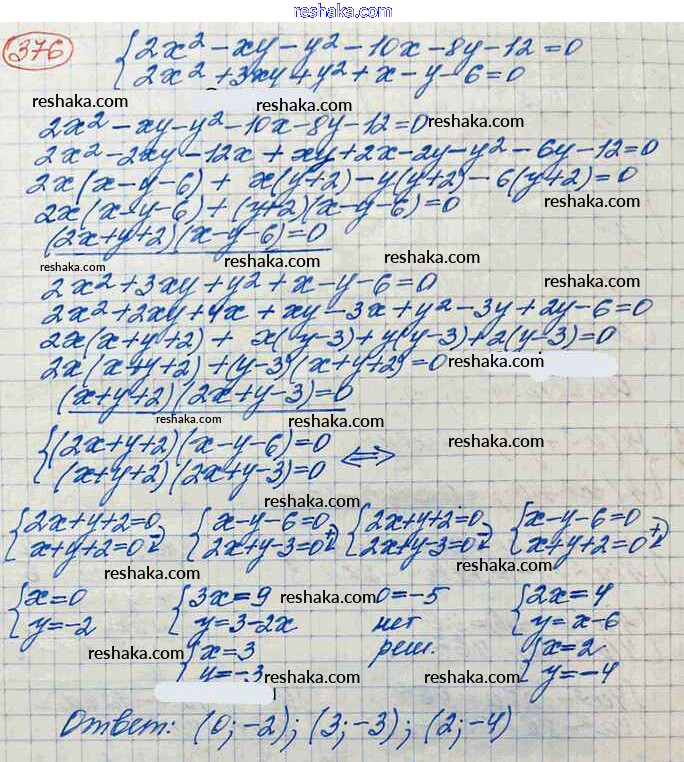 reshaka.com
376
{2x² - xy - y² - 10x - 8y - 12 = 0
{2x² + 3xy + y² + x - y - 6 = 0
reshaka.com
reshaka.com
2x² - xy - y² - 10x - 8y - 12 = 0
reshaka.com
2x² - 2xy - 12x + xy + 2x - 2y - y² - 6y - 12 = 0
2x(x - y - 6) + x(y+2) - y(y+2) - 6(y+2) = 0
2x(x - y - 6) + (y+2)(x - y - 6) = 0
reshaka.com
(2x+y+2)(x-y-6) = 0
reshaka.com
reshaka.com
2x² + 3xy + y² + x - y - 6 = 0
reshaka.com
2x² + 2xy + 4x + xy - 3x + y² - 3y + 2y - 6 = 0
2x(x+y+2) + x(y-3) + y(y-3) + 2(y-3) = 0
2x(x+y+2) + (y-3)(x+y+2) = 0
reshaka.com
(x+y+2)(2x+y-3) = 0
reshaka.com
reshaka.com
{(2x+y+2)(x-y-6) = 0
{(x+y+2)(2x+y-3) = 0 ⟺
reshaka.com
reshaka.com
{2x+y+2=0 {x-y-6=0 {2x+y+2=0 {x-y-6=0
{x+y+2=0 (-) {2x+y-3=0 (+) {2x+y-3=0 (-) {x+y+2=0 (+)
reshaka.com reshaka.com reshaka.com
{x=0 {3x=9 0=-5 {2x=4
{y=-2 {y=3-2x нет {y=x-6
reshaka.com {x=3 реш. {x=2
{y=-3 reshaka.com reshaka.com {y=-4
Ответ: (0; -2); (3; -3); (2; -4)
reshaka.com